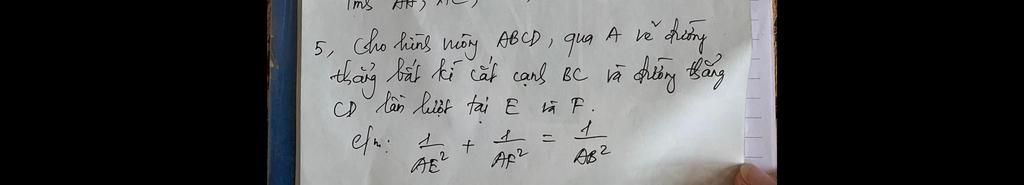 5, Cho hình vuông ABCD, qua A vẽ đường
thẳng bất kì cắt cạnh BC và đường thẳng
CD lần lượt tại E và F.
C/m: 1/AE² + 1/AF² = 1/AB²